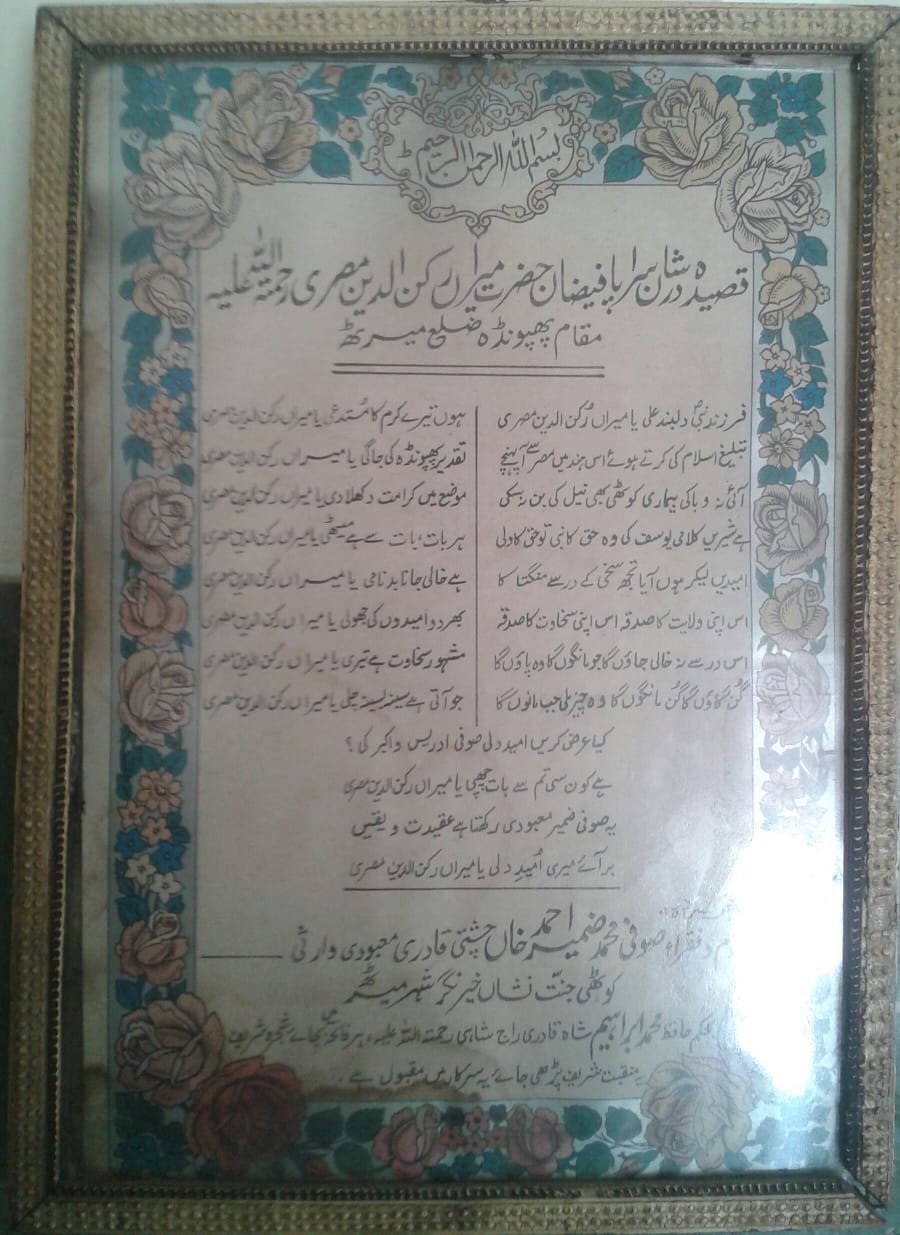 بسم اللہ الرحمن الرحیم
قصیدہ در شان سراپا فیضان حضرت میراں رکن الدین مصری رحمۃ اللہ علیہ
مقام پھپونڈہ ضلع میرٹھ
فرزند نبیؐ دلبند علی یا میراں رُکن الدین مصری ہوں تیرے کرم کا مُستدعی یا میراں رکن الدین مصری
تبلیغ اسلام کی کرتے ہوئے اس ہند میں مصر سے آپہنچے تقدیر پھپونڈہ کی جاگی یا میراں رکن الدین مصری
آئی نہ وبا کی بیماری کوٹھی بھی نیل کی بن نہ سکی موضع میں کرامت دکھلا دی یا میراں رکن الدین مصری
ہے شیریں کلامی یوسف کی وہ حق کا نبی تو حق کا ولی ہر بات، بات سے ہے میٹھی یا میراں رکن الدین مصری
امیدیں لیکر ہوں آیا تجھ سخی کے در سے منگتا کا ہے خالی جانا بدنامی یا میراں رکن الدین مصری
اس اپنی ولایت کا صدقہ اس اپنی سخاوت کا صدقہ بھر دو امیدوں کی جھولی یا میراں رکن الدین مصری
اس در سے نہ خالی جاؤں گا جو مانگوں گا وہ پاؤں گا مشہور سخاوت ہے تیری یا میراں رکن الدین مصری
گُن گاؤں گا گُن مانگوں گا وہ چیز ملی جب مانوں گا جو آتی ہے سینہ سینہ چلی یا میراں رکن الدین مصری
کیا عرض کریں امید دلی صوفی ادریس و اکبر کی؟
ہے کون سی تم سے بات چھپی یا میراں رکن الدین مصری
یہ صوفی ضمیر معبودی رکھتا ہے عقیدت و یقیں
بر آئے میری اُمیدِ دلی یا میراں رکن الدین مصری
فقراء صوفی محمد ضمیر احمد خاں چشتی قادری معبودی وارثی
کوٹھی جنّت نشاں خیر نگر شہر میرٹھ
حافظ محمد ابراہیم شاہ قادری راج شاہی رحمتہ اللہ علیہ، ہر فاتحہ میں بجائے شجرہ شریف
یہ منقبت شریف پڑھی جائے یہ سرکار میں مقبول ہے۔